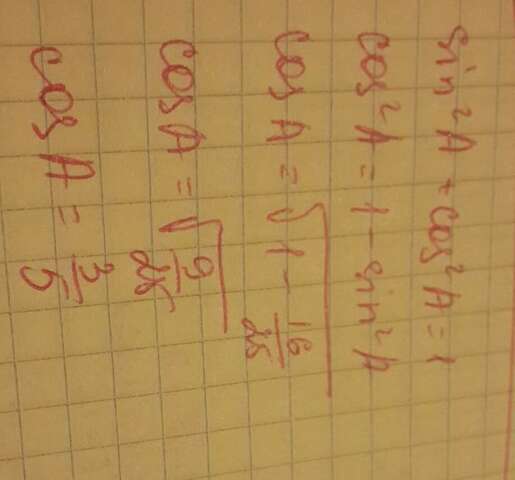 sin²A + cos²A = 1
cos²A = 1 - sin²A
cos A = √(1 - 16/25)
cos A = √(9/25)
cos A = 3/5